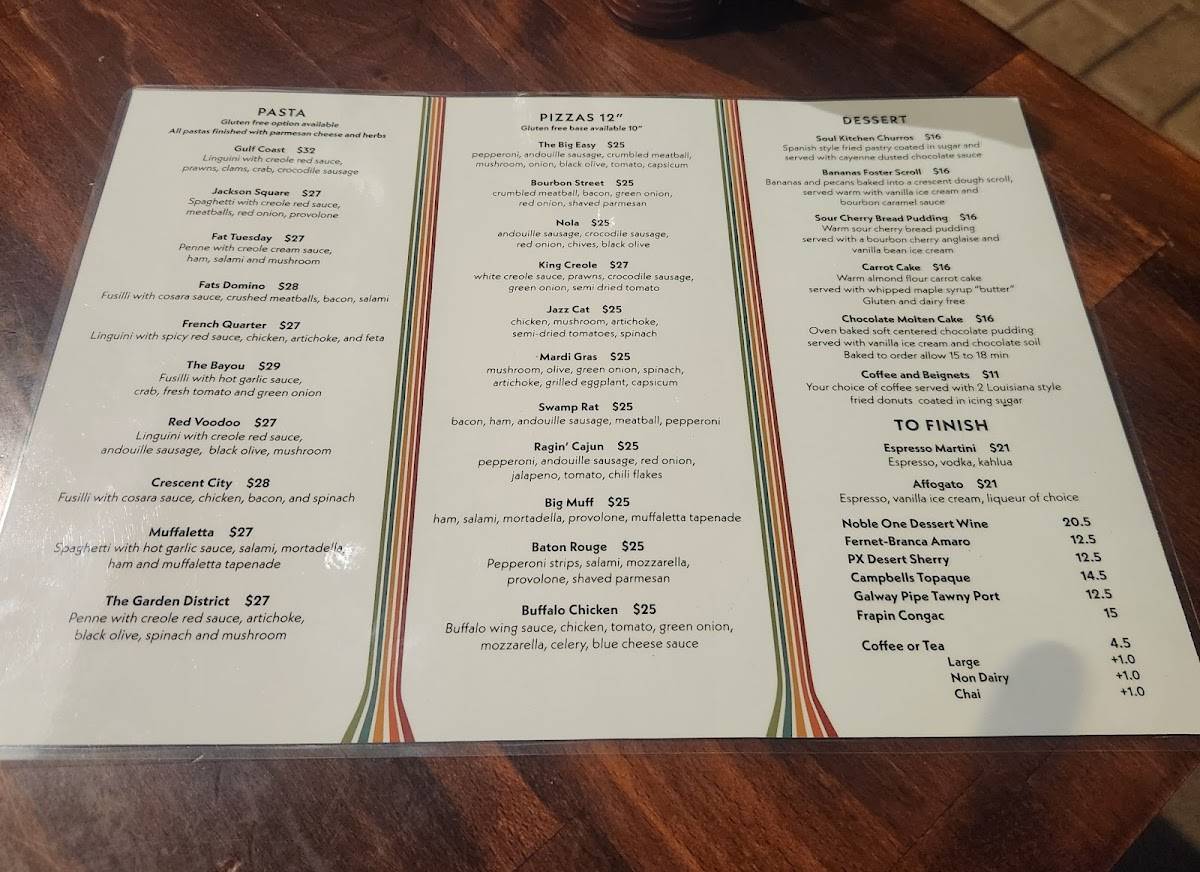 PASTA
Gluten free option available
All pastas finished with parmesan cheese and herbs
Gulf Coast $32
Linguini with creole red sauce,
prawns, clams, crab, crocodile sausage
Jackson Square $27
Spaghetti with creole red sauce,
meatballs, red onion, provolone
Fat Tuesday $27
Penne with creole cream sauce,
ham, salami and mushroom
Fats Domino $28
Fusilli with cosara sauce, crushed meatballs, bacon, salami
French Quarter $27
Linguini with spicy red sauce, chicken, artichoke, and feta
The Bayou $29
Fusilli with hot garlic sauce,
crab, fresh tomato and green onion
Red Voodoo $27
Linguini with creole red sauce,
andouille sausage, black olive, mushroom
Crescent City $28
Fusilli with cosara sauce, chicken, bacon, and spinach
Muffaletta $27
Spaghetti with hot garlic sauce, salami, mortadella,
ham and muffaletta tapenade
The Garden District $27
Penne with creole red sauce, artichoke,
black olive, spinach and mushroom
PIZZAS 12"
Gluten free base available 10"
The Big Easy $25
pepperoni, andouille sausage, crumbled meatball,
mushroom, onion, black olive, tomato, capsicum
Bourbon Street $25
crumbled meatball, bacon, green onion,
red onion, shaved parmesan
Nola $25
andouille sausage, crocodile sausage,
red onion, chives, black olive
King Creole $27
white creole sauce, prawns, crocodile sausage,
green onion, semi dried tomato
Jazz Cat $25
chicken, mushroom, artichoke,
semi-dried tomatoes, spinach
Mardi Gras $25
mushroom, olive, green onion, spinach,
artichoke, grilled eggplant, capsicum
Swamp Rat $25
bacon, ham, andouille sausage, meatball, pepperoni
Ragin' Cajun $25
pepperoni, andouille sausage, red onion,
jalapeno, tomato, chili flakes
Big Muff $25
ham, salami, mortadella, provolone, muffaletta tapenade
Baton Rouge $25
Pepperoni strips, salami, mozzarella,
provolone, shaved parmesan
Buffalo Chicken $25
Buffalo wing sauce, chicken, tomato, green onion,
mozzarella, celery, blue cheese sauce
DESSERT
Soul Kitchen Churros $16
Spanish style fried pastry coated in sugar and
served with cayenne dusted chocolate sauce
Bananas Foster Scroll $16
Bananas and pecans baked into a crescent dough scroll,
served warm with vanilla ice cream and
bourbon caramel sauce
Sour Cherry Bread Pudding $16
Warm sour cherry bread pudding
served with a bourbon cherry anglaise and
vanilla bean ice cream
Carrot Cake $16
Warm almond flour carrot cake
served with whipped maple syrup "butter"
Gluten and dairy free
Chocolate Molten Cake $16
Oven baked soft centered chocolate pudding
served with vanilla ice cream and chocolate soil
Baked to order allow 15 to 18 min
Coffee and Beignets $11
Your choice of coffee served with 2 Louisiana style
fried donuts coated in icing sugar
TO FINISH
Espresso Martini $21
Espresso, vodka, kahlua
Affogato $21
Espresso, vanilla ice cream, liqueur of choice
Noble One Dessert Wine 20.5
Fernet-Branca Amaro 12.5
PX Desert Sherry 12.5
Campbells Topaque 14.5
Galway Pipe Tawny Port 12.5
Frapin Congac 15
Coffee or Tea 4.5
Large +1.0
Non Dairy +1.0
Chai +1.0